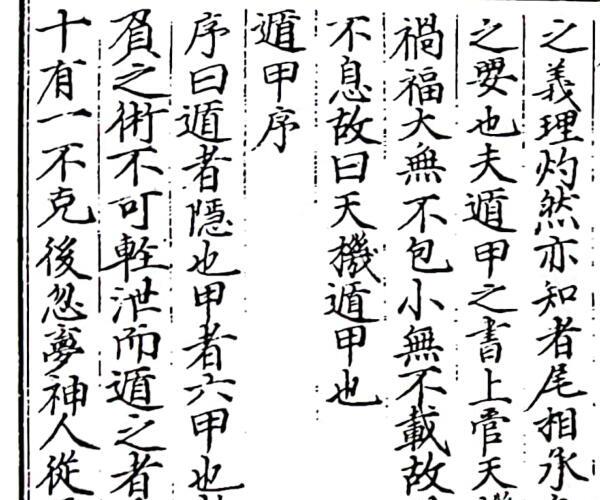 之義理灼然亦知者尾相承
之要也夫遁甲之書上管天
禍福大無不包小無不載故
不息故曰天機遁甲也
遁甲序
序曰遁者隱也甲者六甲也
負之術不可輕泄而遁之者
十有一不克後忽夢神人從